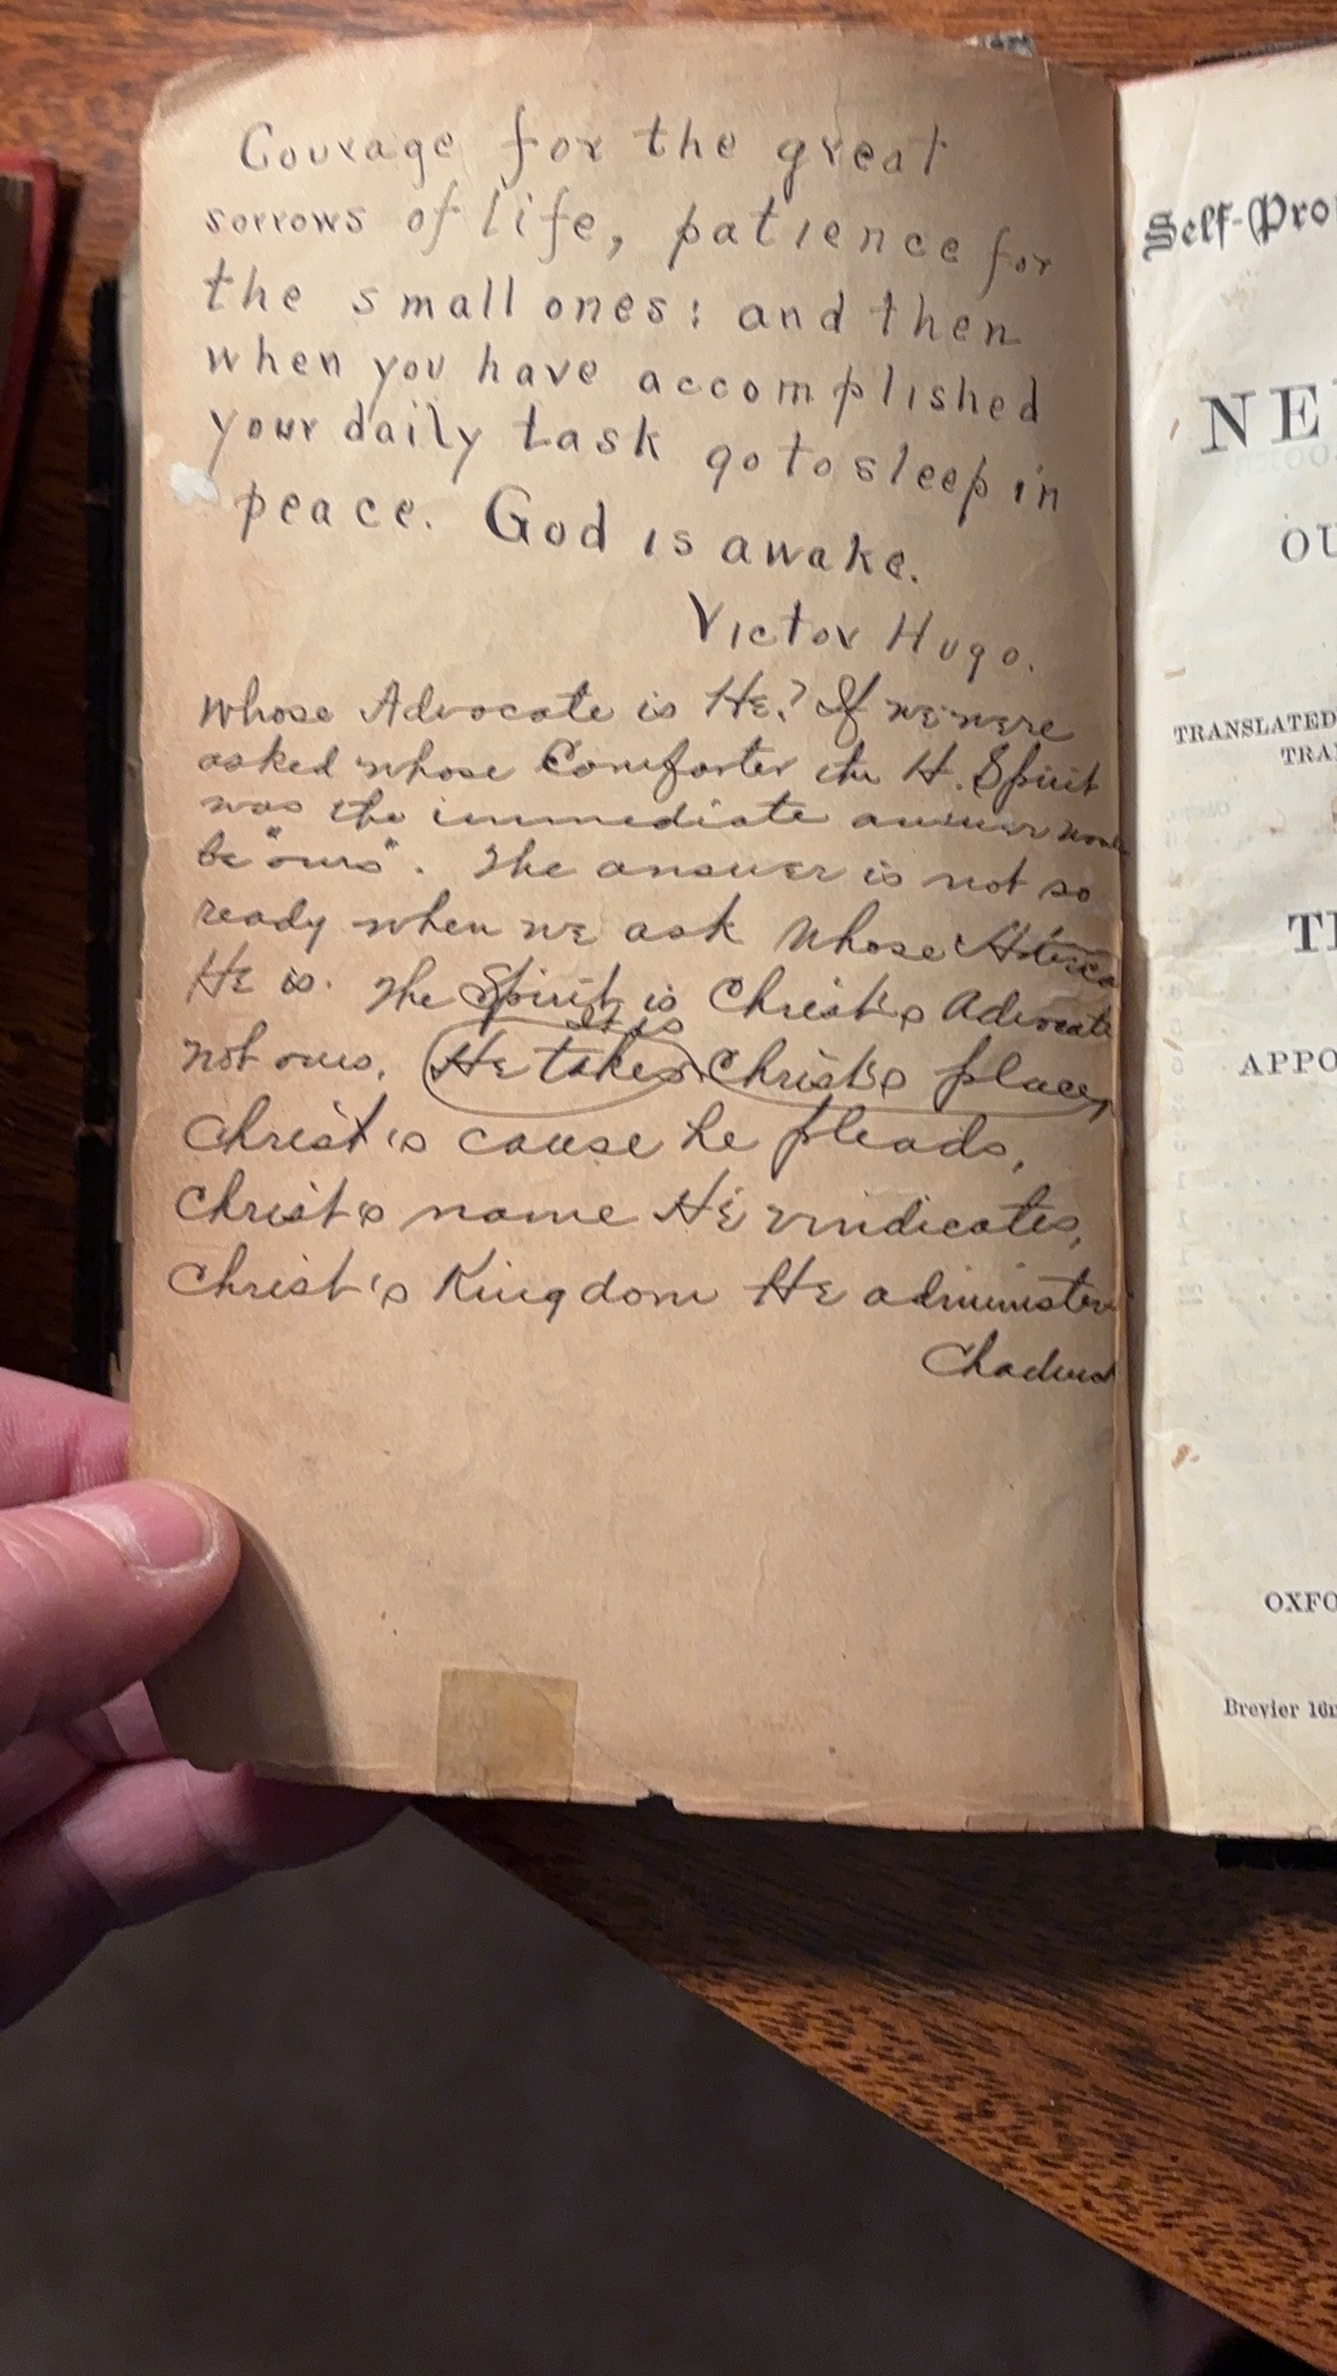 Courage for the great
sorrows of life, patience for
the small ones; and then
when you have accomplished
your daily task go to sleep in
peace. God is awake.
Victor Hugo.
Whose Advocate is He? If we were
asked whose Comforter the H. Spirit
was the immediate answer would
be "ours". The answer is not so
ready when we ask whose
He is. The Spirit is Christ's Advocate
not ours. It is
He takes Christ's place,
Christ's cause he pleads,
Christ's name He vindicates,
Christ's Kingdom He administers
Chadwick
Self-Pro
NE
OU
TRANSLATED
TRA
TH
APPO
OXFO
Brevier 16